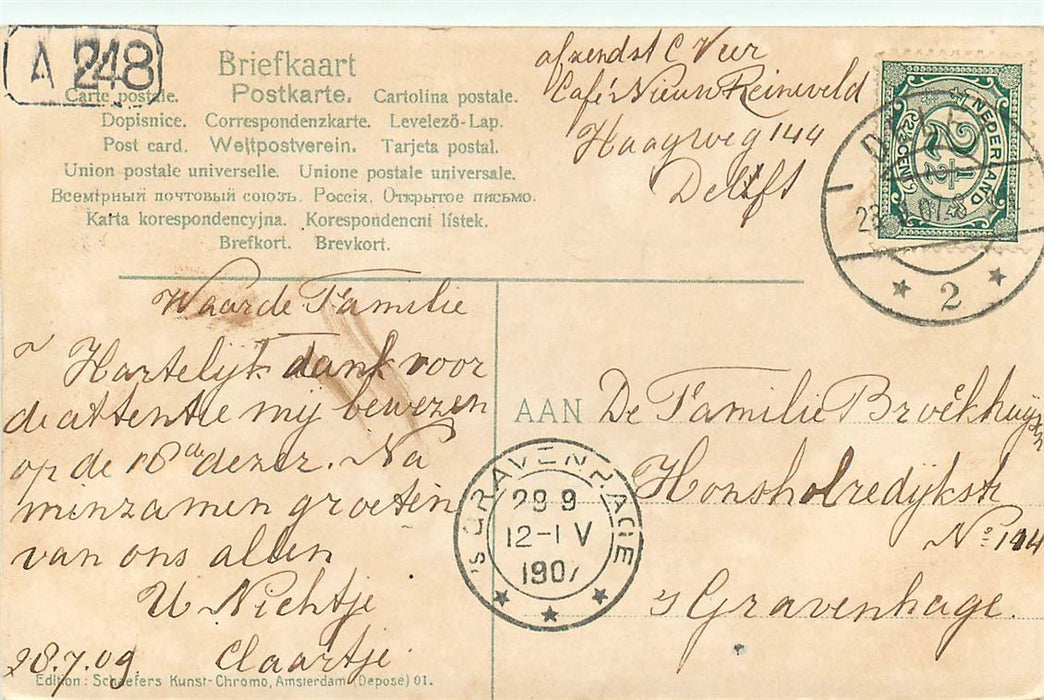 A 248
Briefkaart
Carte postale. Postkarte. Cartolina postale.
Dopisnice. Correspondenzkarte. Levelező-Lap.
Post card. Weltpostverein. Tarjeta postal.
Union postale universelle. Unione postale universale.
Всемірный почтовый союзъ. Россія. Открытое письмо.
Karta korespondencyjna. Korespondencni listek.
Brefkort. Brevkort.
afzendst C Veer
Café Nieuw Reineveld
Haagweg 144
Delft
NEDERLAND
2½
2½ CENT
2
Waarde Familie
Hartelijk dank voor
de attentie mij bewezen
op de 18de dezer. Na
minzamen groeten
van ons allen
U Nichtje
Claartje
28.7.09.
AAN De Familie Broêkhuyzn
Honsholredijkstr
No 144
s Gravenhage.
'S GRAVENHAGE
29 9
12-1 V
190
Edition: Schaefers Kunst-Chromo, Amsterdam (Depose) 01.